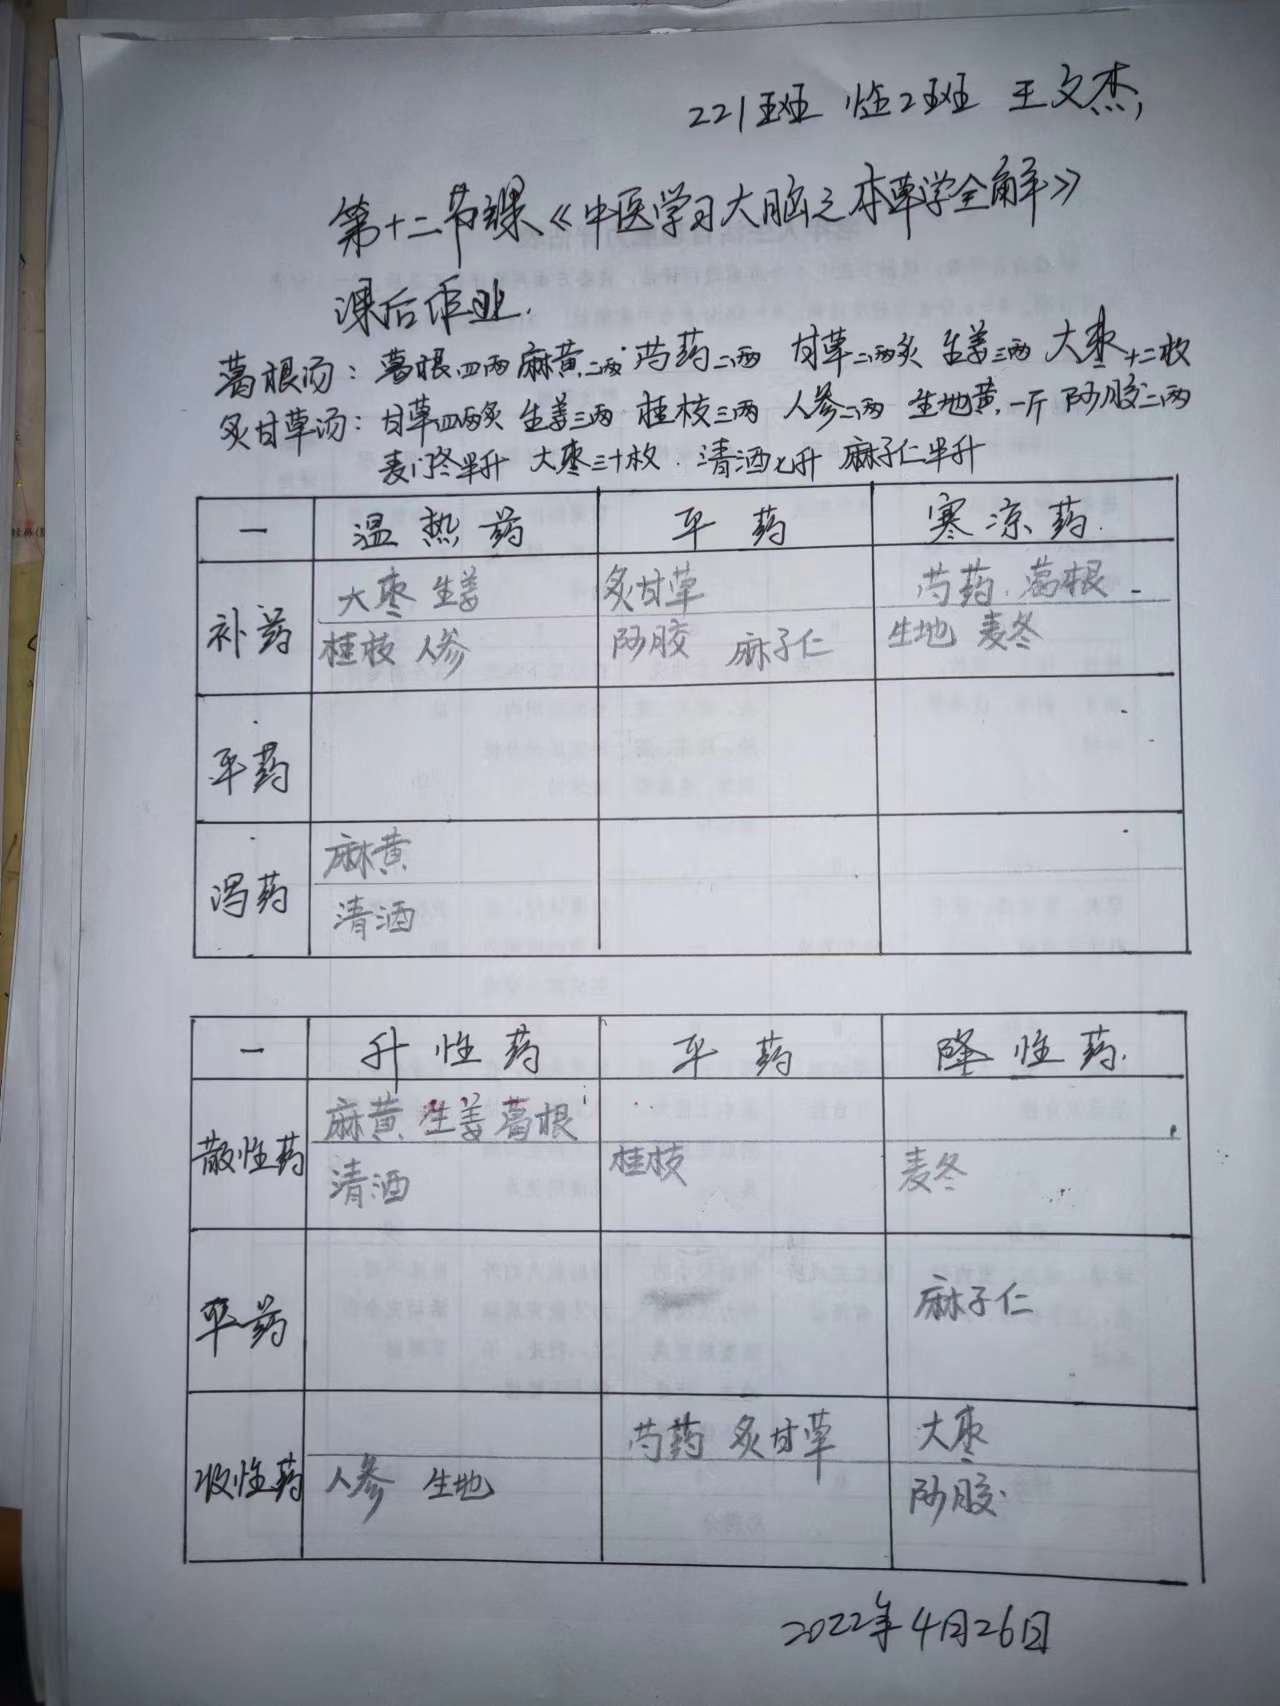 221班 临2班 王文杰
第十二节课《中医学习大脑之本草学全解》
课后作业.
葛根汤：葛根四两 麻黄二两 芍药二两 甘草二两炙 生姜三两 大枣十二枚
炙甘草汤：甘草四两炙 生姜三两 桂枝三两 人参二两 生地黄一斤 阿胶二两
麦门冬半升 大枣三十枚 清酒七升 麻子仁半升
一 温热药 平药 寒凉药
大枣 生姜 炙甘草 芍药 葛根
补药
桂枝 人参 阿胶 麻子仁 生地 麦冬
平药
麻黄
泻药
清酒
一 升性药 平药 降性药
麻黄 生姜 葛根
散性药
清酒 桂枝 麦冬
平药 麻子仁
芍药 炙甘草 大枣
收性药 人参 生地 阿胶
2022年4月26日